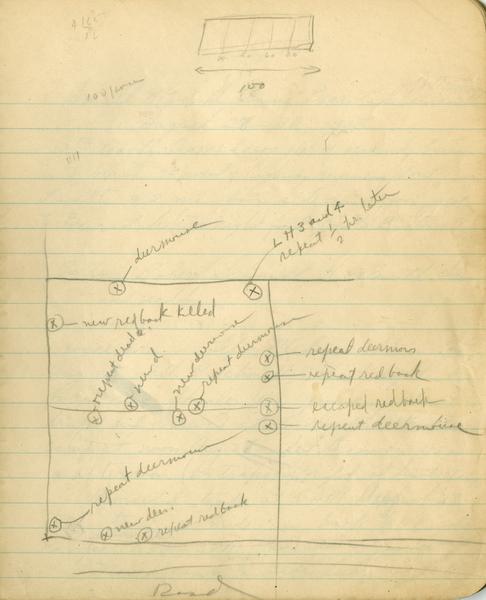 100
deermouse
LH 3 and 4
repeat 1/2 hr. later
new redback killed
repeat dead
new d
new deermouse
repeat deermouse
repeat deermous
repeat redback
escaped redback
repeat deermouse
repeat deermouse
new deer.
repeat redback
Road